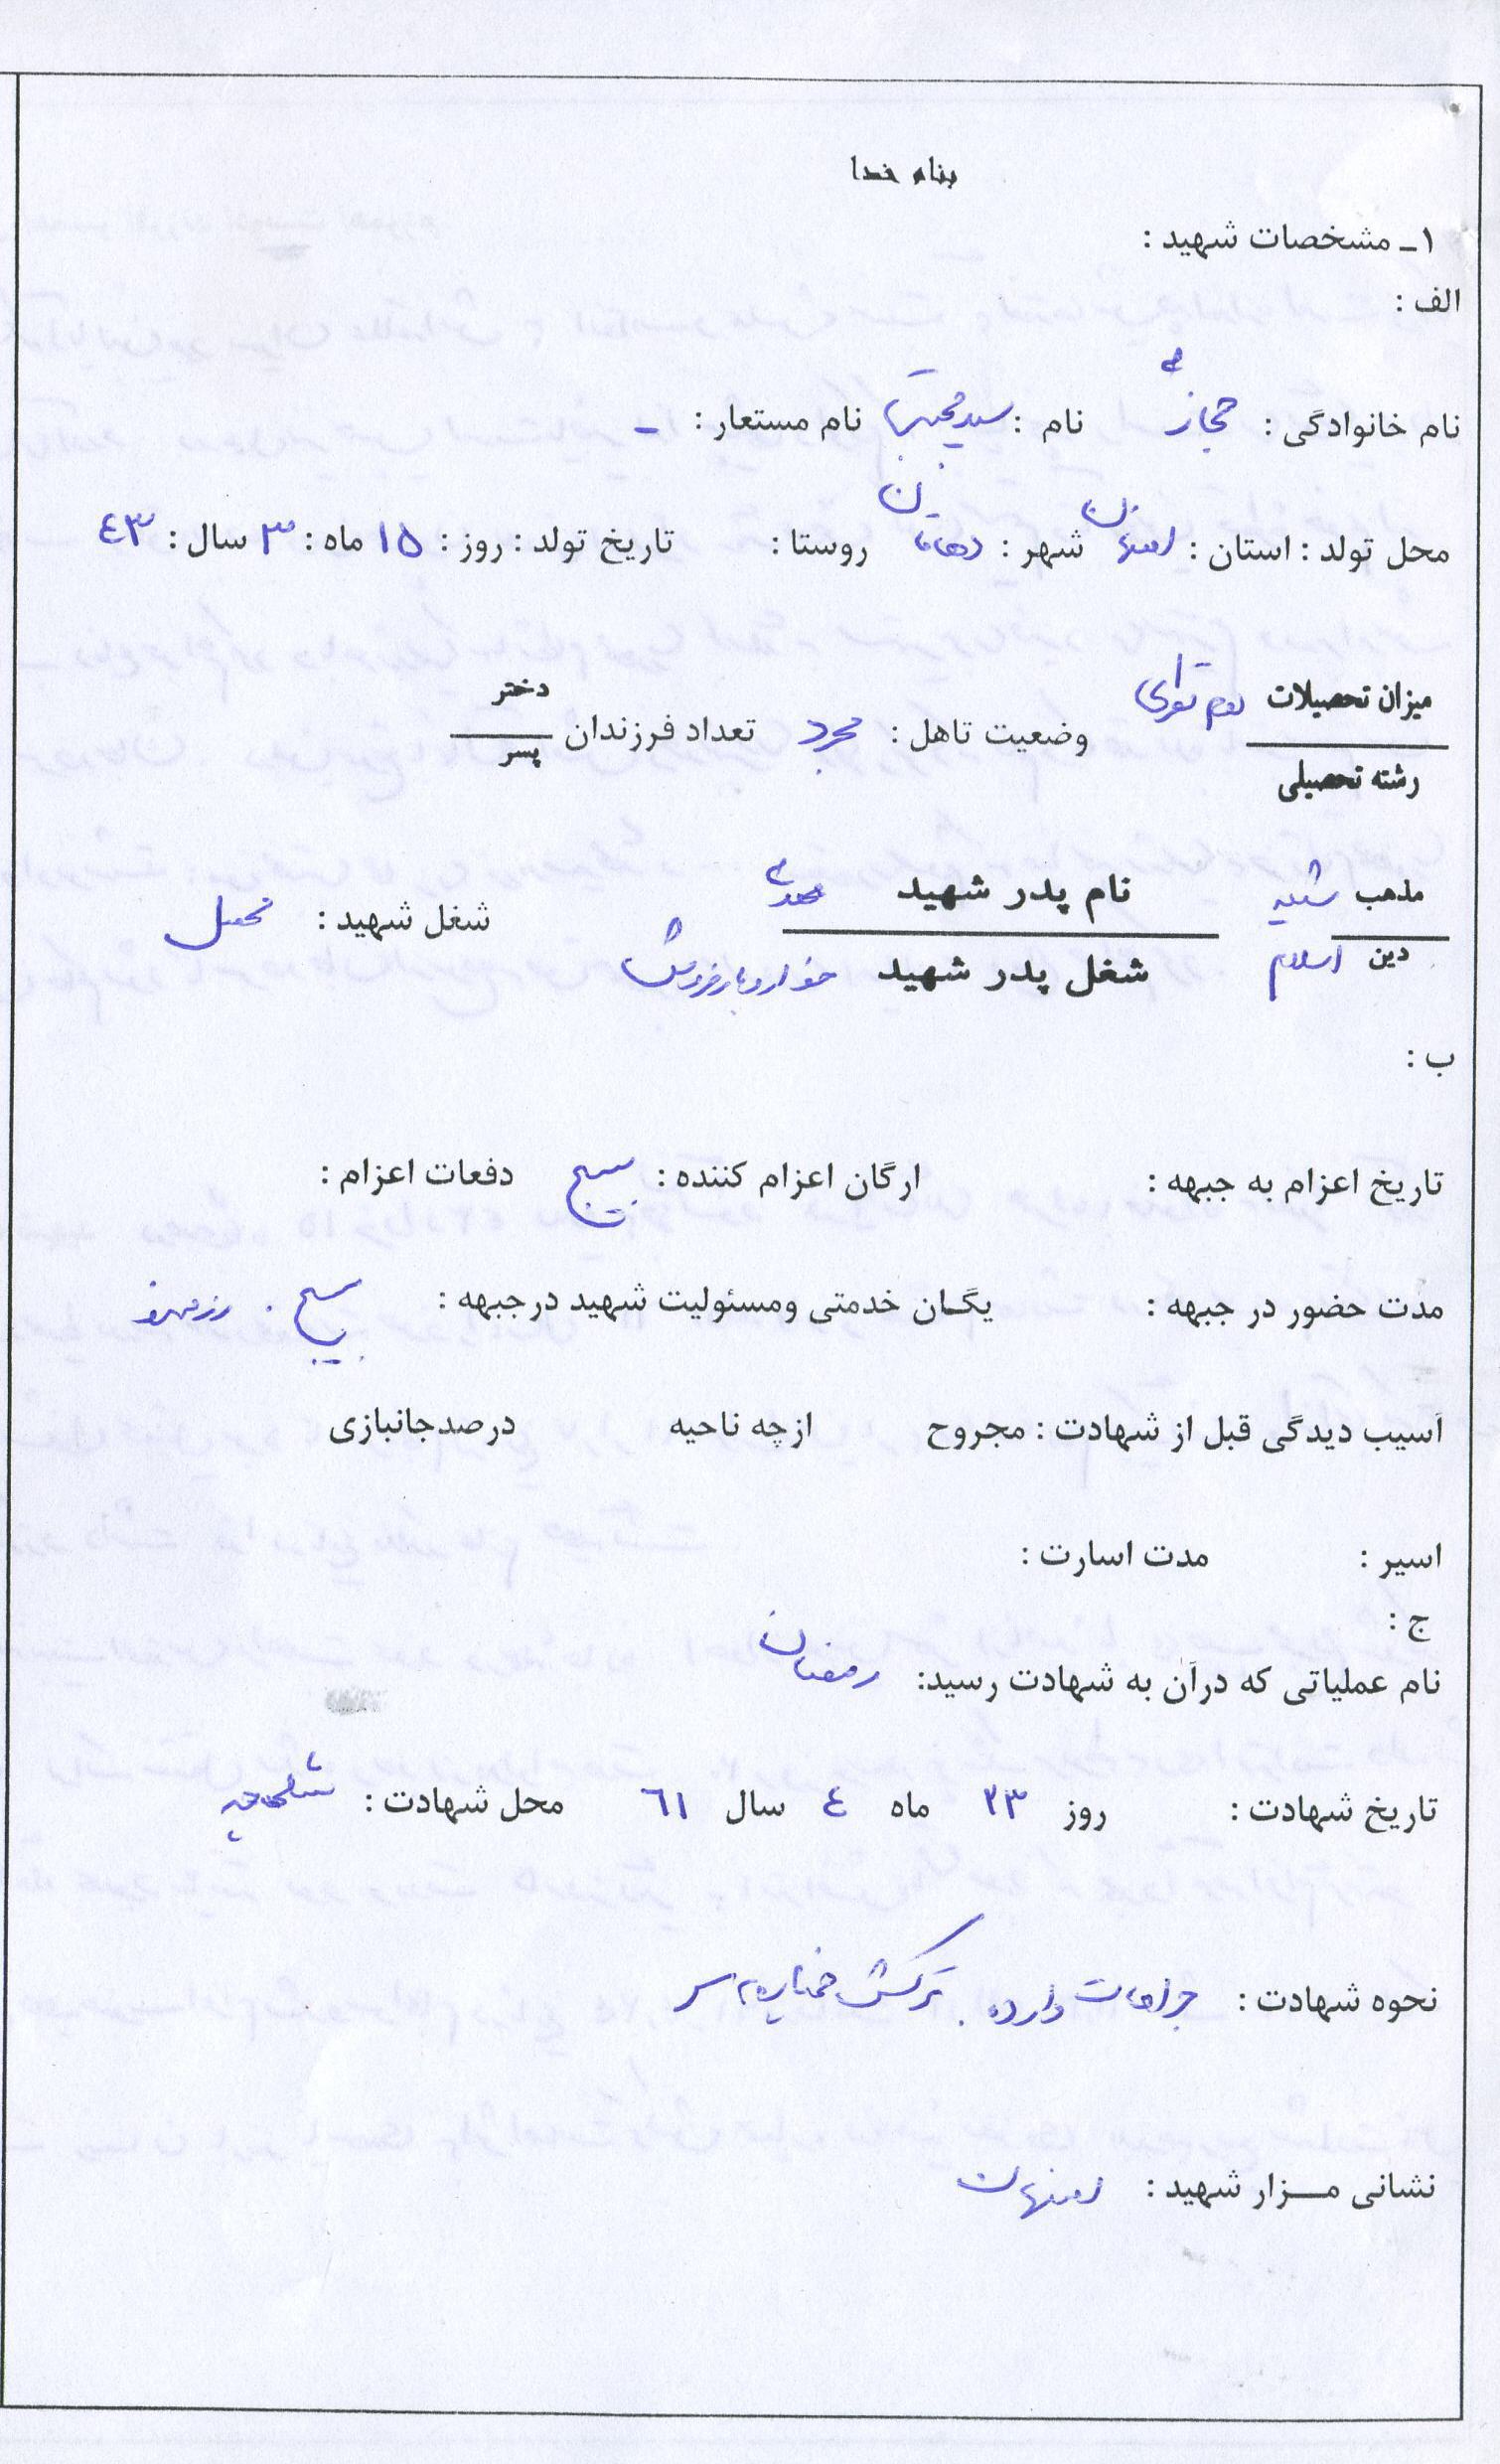 بنام خدا
۱ـ مشخصات شهید :
الف :
نام خانوادگی : حجازی نام : سید مجتبی نام مستعار : -
محل تولد : استان : اصفهان شهر : دهاقان روستا : تاریخ تولد : روز : ۱۵ ماه : ۳ سال : ٤٣
میزان تحصیلات دوم نظری وضعیت تاهل : مجرد تعداد فرزندان دختر
رشته تحصیلی پسر
مذهب شیعه نام پدر شهید مهدی شغل شهید : محصل
دین اسلام شغل پدر شهید خواروبار فروش
ب :
تاریخ اعزام به جبهه : ارگان اعزام کننده : بسیج دفعات اعزام :
مدت حضور در جبهه : یگان خدمتی ومسئولیت شهید درجبهه : بسیج . رزمنده
آسیب دیدگی قبل از شهادت : مجروح ازچه ناحیه درصدجانبازی
اسیر : مدت اسارت :
ج :
نام عملیاتی که درآن به شهادت رسید: رمضان
تاریخ شهادت : روز ۲۳ ماه ٤ سال ٦١ محل شهادت : شلمچه
نحوه شهادت : جراحات وارده . ترکش خمپاره به سر
نشانی مـزار شهید : اصفهان